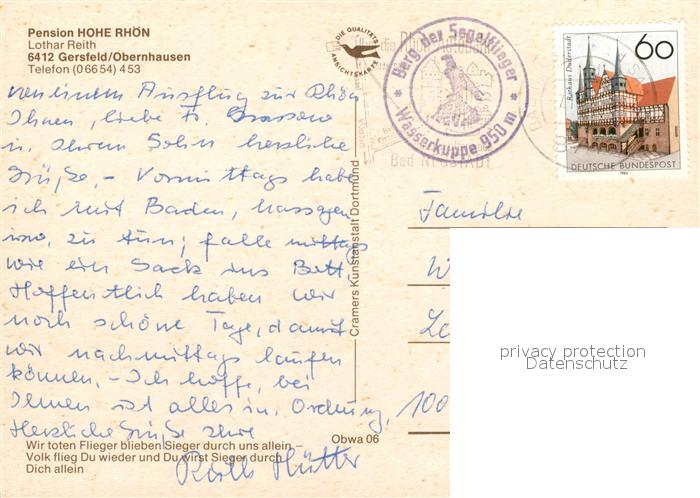 Pension HOHE RHÖN
Lothar Reith
6412 Gersfeld/Obernhausen
Telefon (0 66 54) 453
DIE QUALITÄTS
ANSICHTSKARTE
Berg der Segelflieger
Wasserkuppe 950 m
Bad NEUSTADT
60
Rathaus Duderstadt
DEUTSCHE BUNDESPOST
1984
von einem Ausflug zur Rhön
Ihnen, liebe Fr.
u. Ihrem Sohn herzliche
Grüße. – Vormittags habe
ich mit Baden, massagen
usw. zu tun; falle mittags
wie ein Sack ins Bett.
Hoffentlich haben wir
noch schöne Tage, damit
wir nachmittags laufen
können. – Ich hoffe, bei
Ihnen ist alles in Ordnung,
Herzliche Grüße Ihre
Hütter
Familie
W
100
Cramers Kunstanstalt Dortmund
Obwa 06
Wir toten Flieger blieben Sieger durch uns allein –
Volk flieg Du wieder und Du wirst Sieger durch
Dich allein
privacy protection
Datenschutz